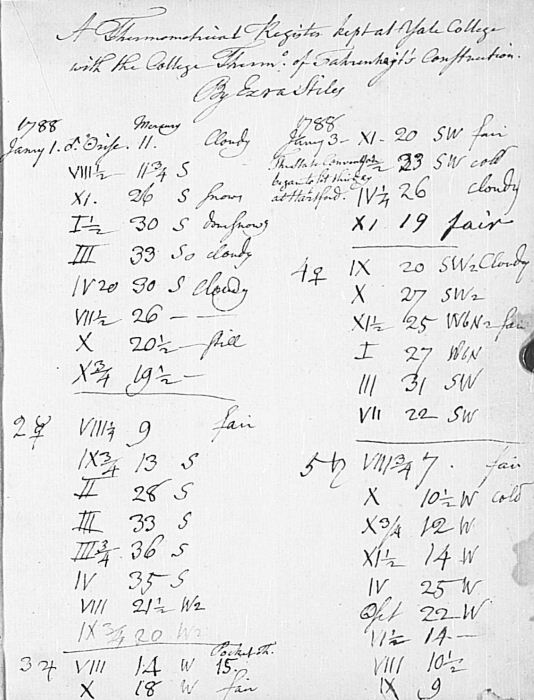 A Thermometrical Register kept at Yale College
with the College Therm.º of Fahrenheyt's Construction.
By Ezra Stiles
1788 Mercury
Janry 1. 11. Cloudy
VIII½ 11¾ S
XI. 26 S snow
I½ 30 S
III 33 So cloudy
IV 20 30 S cloudy
VII½ 26 —
X 20½ — still
X¾ 19½ —
2 ☿ VIII¼ 9 fair
IX¾ 13 S
II 28 S
III 33 S
III¾ 36 S
IV 35 S
VIII 21½ W2
IX¾ 20 W2
Pocket Th.
3 ♃ VIII 14 W 15.
X 18 W fair
1788
Janry 3 — XI. 20 SW fair
The State Convention
33 SW cold
began to sit this day
at Hartford. IV¼ 26 cloudy
XI 19 fair
4 ♀ IX 20 SW2 Cloudy
X 27 SW2
XI½ 25 WbN2 fair
I 27 WbN
III 31 SW
VII 22 SW
5 ♄ VIII¾ 7. fair
X 10½ W cold
X¾ 12 W
XI½ 14 W
IV 25 W
22 W
VI½ 14 —
VIII 10½
IX 9